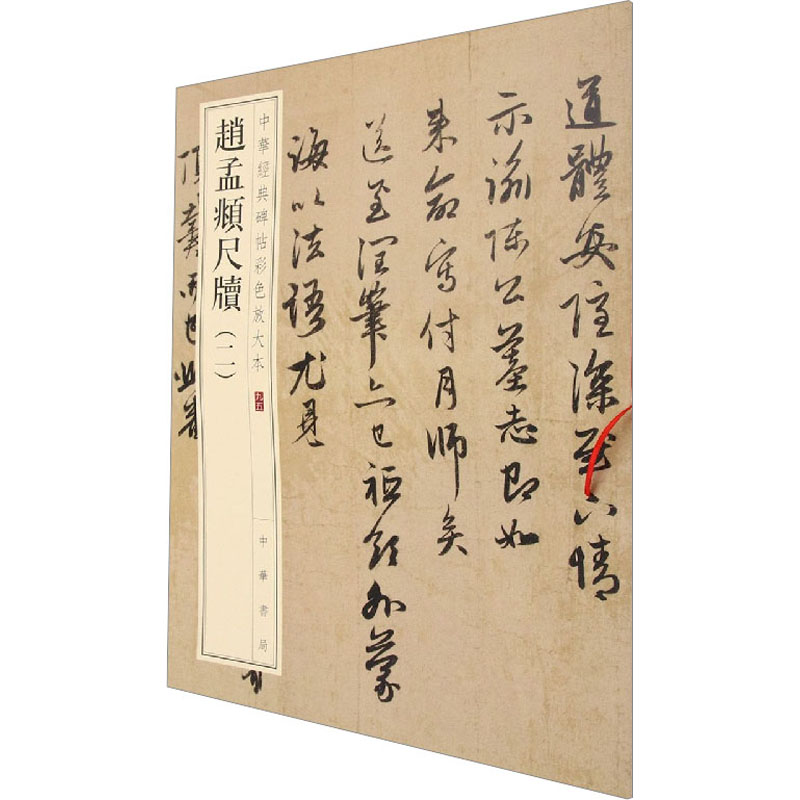 道體安隱深慰下情
示諭陳公墓志即如
来命寫付月師矣
送至潤筆亦已祗領外蒙
誨以法語尤見
中華經典碑帖彩色放大本
九五
中華書局
趙孟頫尺牘（二）